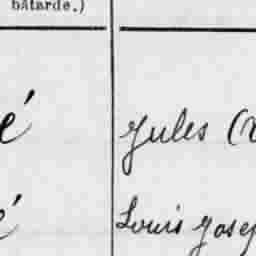 bâtarde.)
é Jules (
é Louis Josep